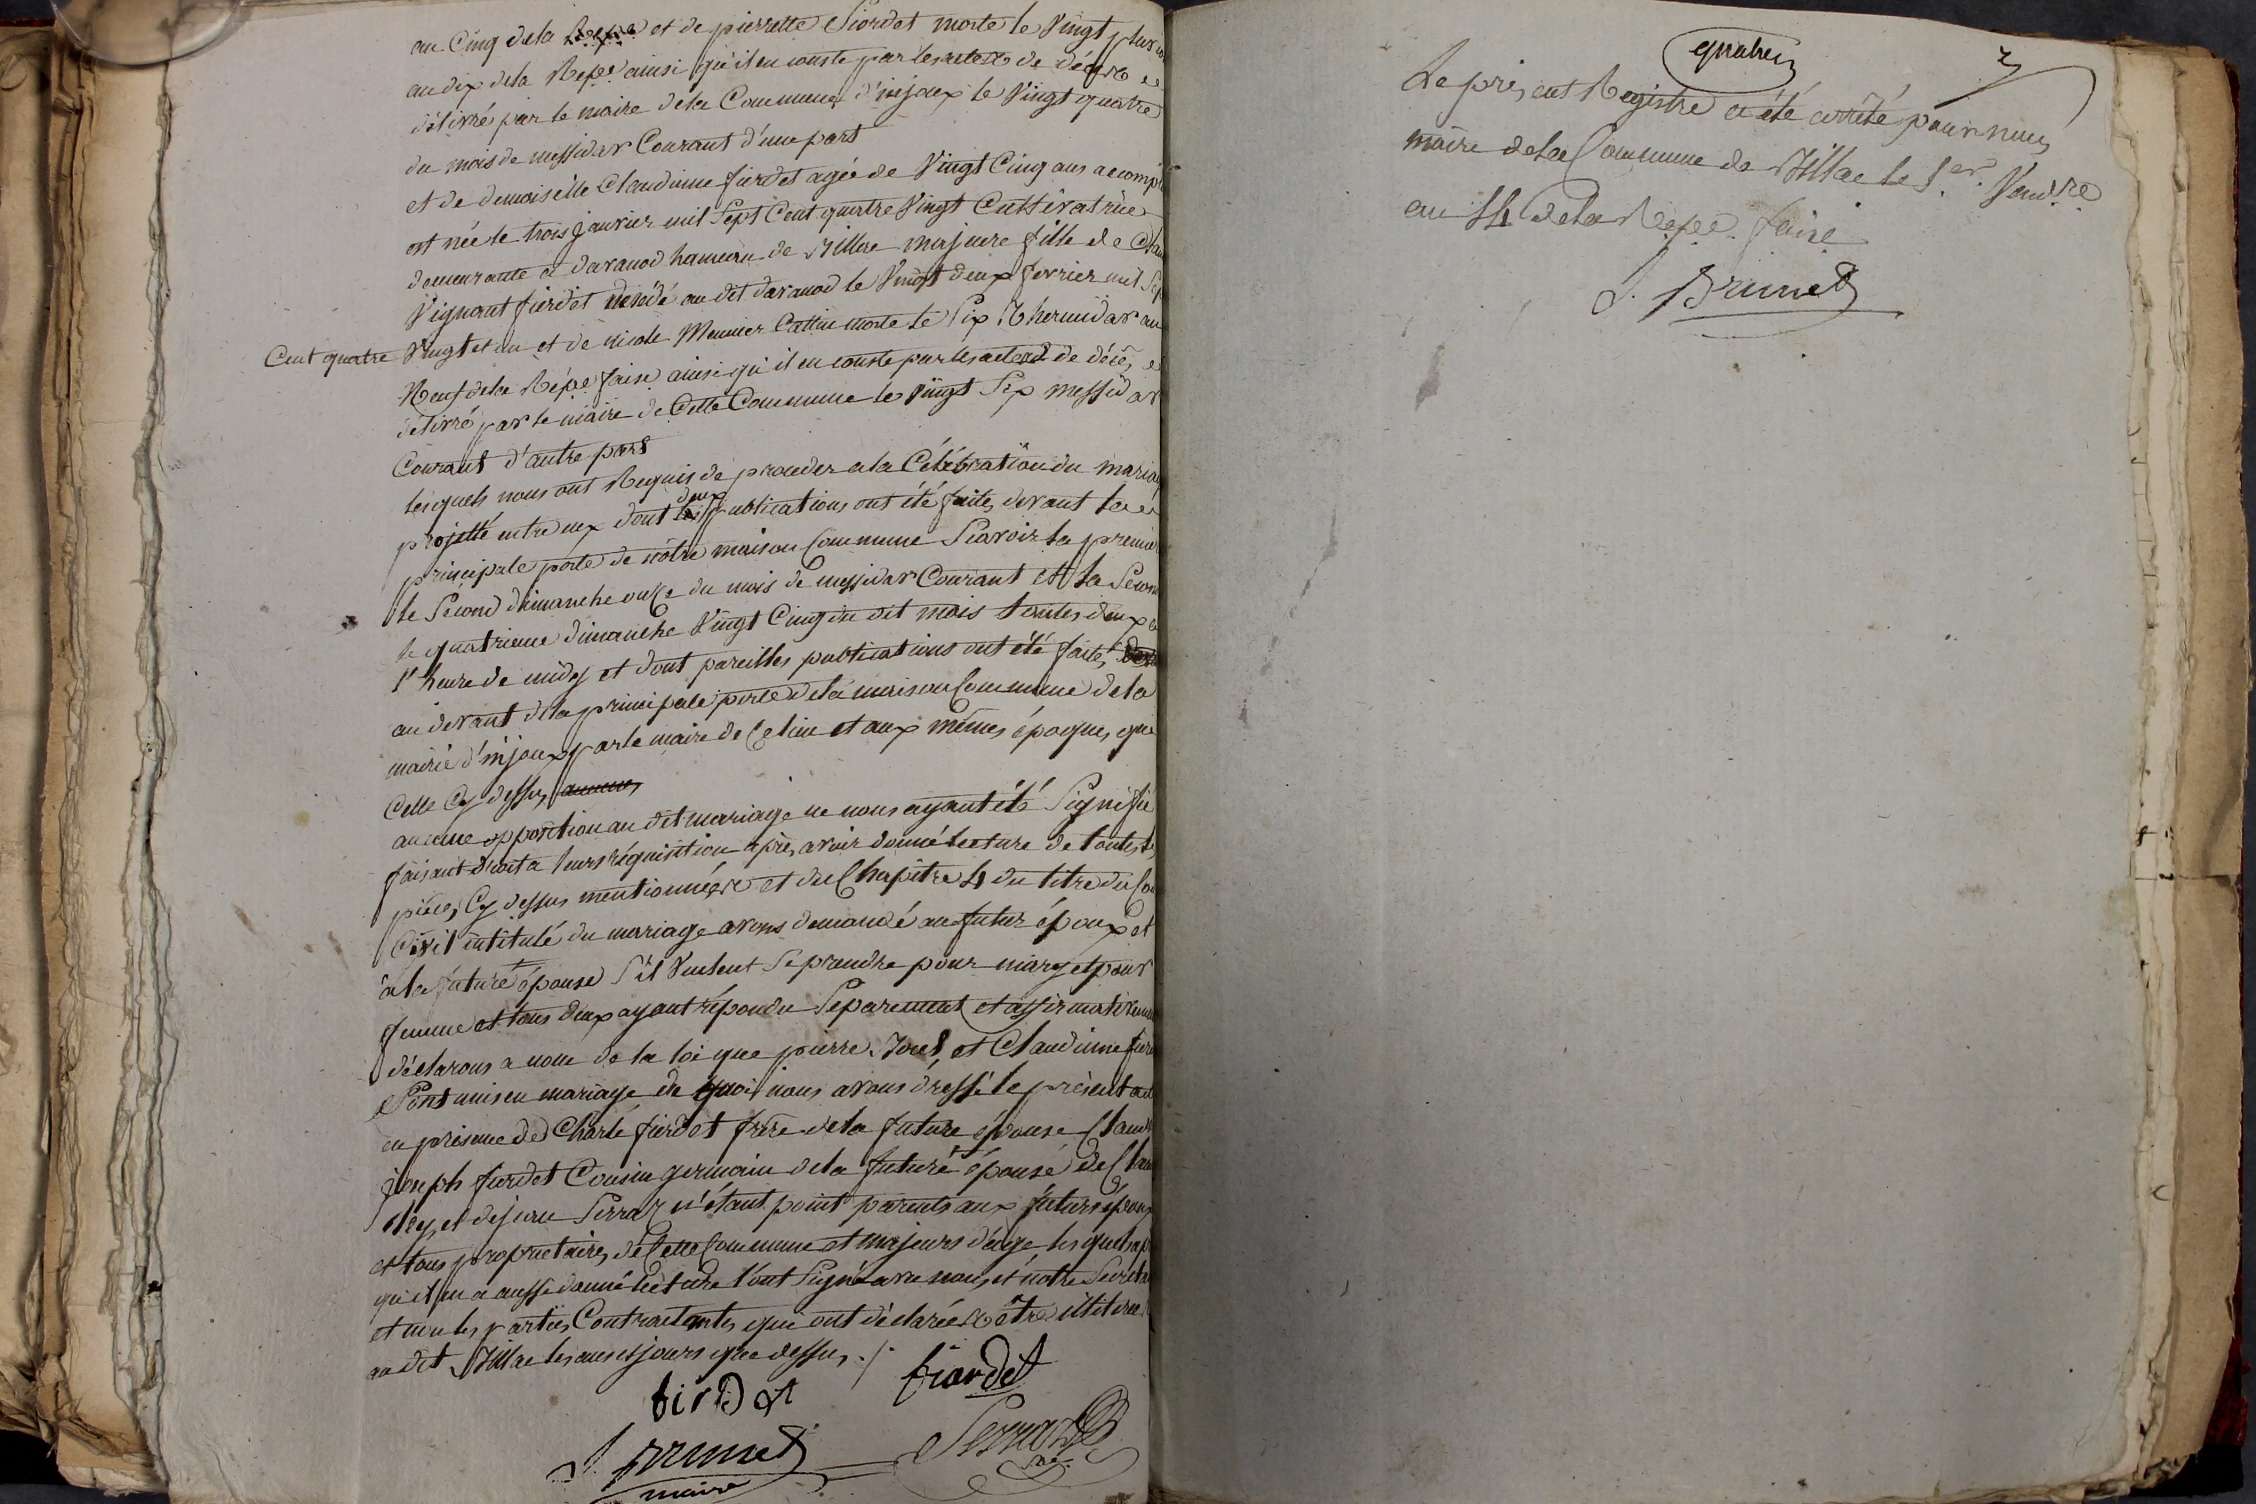 au Cinq dela Repe et de pierrette fiordet morte le Vingt
au dix dela Repe ainsi qu'il en conste par les actes de décès
délivré par le maire dela Commune d'injoux le Vingt quatre
du mois de messidor Courant d'une part
et de demoiselle Claudinne fierdet agée de Vingt Cinq ans accompl
est née le trois janvier mil Sept Cent quatre Vingt Cultivatrice
demeurante a davanod hameau de Villae majeure fille de Clau
Vignant fierdet décédé au dit davanod le Vingt deux fevrier mil Sep
Cent quatre Vingt et un et de nicole Meunier Cattin morte le Six Thermidor au
Neuf dela Répe faise ainsi qu'il en conste par les actes de décès
delivré par le maire de Cette Commune le Vingt Six messidor
Courant d'autre part
lesquels nous ont Requis de proceder a la Célébration du maria
projetté entre eux dont les deux publications ont été faites devant la
principale porte de nôtre maison Commune Scavoir la premie
le Second dimanche onze du mois de messidor Courant et la Secon
le quatrieme dimanche Vingt Cinq du dit mois toutes deux a
l'heure de midy et dont pareilles publications ont été faites
au devant dela principale porte dela maison Commune dela
mairie d'injoux par le maire de Celieu et aux mêmes époques que
Celle Cy dessus aucune
aucune opposition au dit mariage ne nous ayant été Signifié
faisant droit a leurs réquisition après avoir donné lecture de toutes
pièces Cy dessus mentionnées et du Chapitre 4 du titre du Co
Civil intitulé du mariage avons demandé au futur époux et
à la future épouse S'il Veulent Se prendre pour mary et pour
femme et tous deux ayant répondu Separement et affirmativeme
déclarons a nom de la loi que pierre Jouet et Claudinne fier
Sont unis en mariage de quoi nous avons dressé le présent act
en présence de Charle fierdet frère dela future épouse Claud
joseph fierdet Cousin germain dela future épouse de Clau
Rey et dejeau Serraz n'étant point parents aux futurs épou
et tous propriétaires de Cette Commune et majeurs d'age les quels ap
qu'il en a aussi donné lecture l'ont Signé avec nous et nôtre Secreta
et non les parties Contractantes qui ont déclarée être illitéree
au dit Villae les ans et jours que dessus ./.
fierdet fiordet
J. Brunet Serraz
maire Sre
quatre
Le présent Registre a été arrêté par nous
maire dela Commune de Villae le 1er. Vendre
au 14 dela Repe. faise
J. Brunet